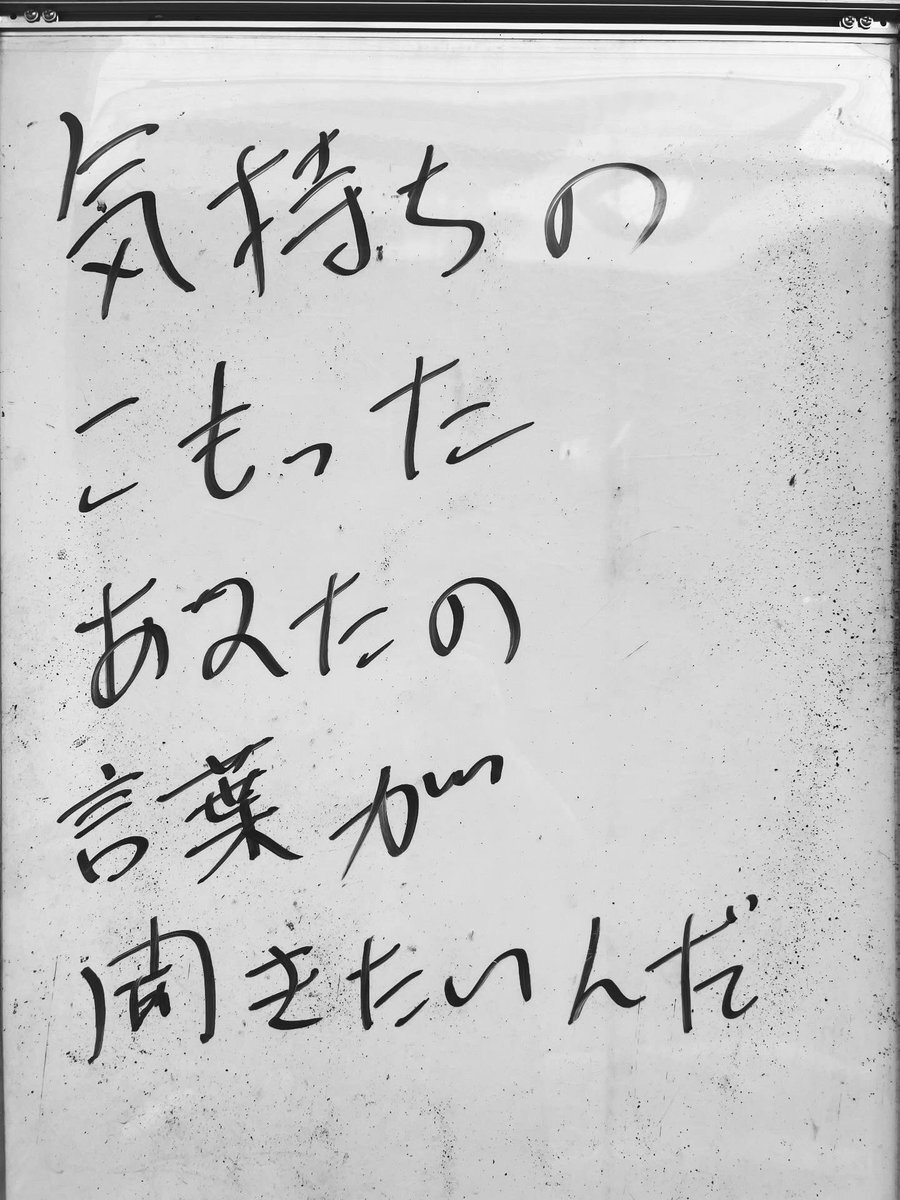 気持ちの
こもった
あなたの
言葉が
聞きたいんだ